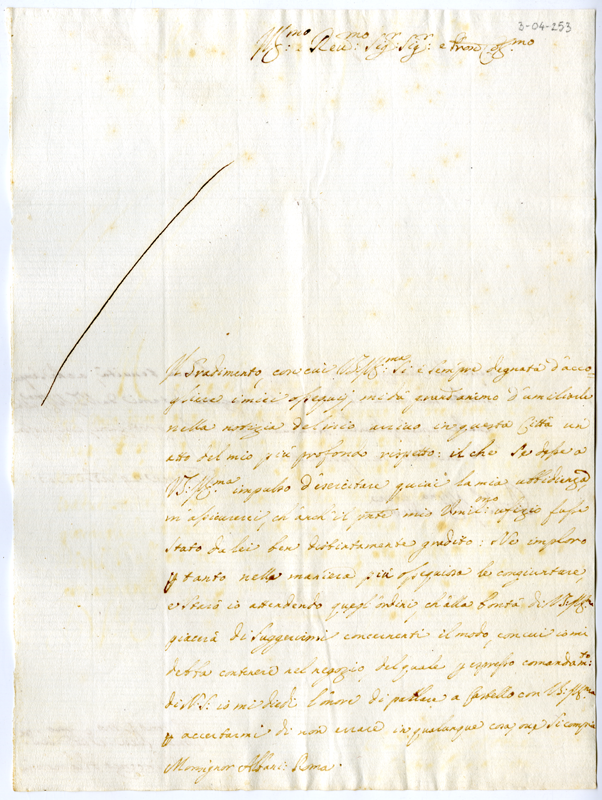 3-04-253
Ill:mo e Rev:mo Sig:r Sig:r e Pron Oss:mo
Il Gradimento, con cui V.S. Ill:ma si è sempre degnata d'acco-
gliere i miei ossequj, mi dà grand'animo d'umiliarle
nella notizia del mio arrivo in questa Città un
atto del mio più profondo rispetto: il che se desse a
V.S. Ill:ma impulso d'esercitare quivi la mia ubbidienza,
m'assicurerei, ch'anch'il pnte mio Umil:mo ufizio fusse
stato da lei ben distintamente gradito: Ne imploro
p tanto nella maniera più ossequiosa le congiunture,
e starò io attendendo quegl'ordini, ch'alla bontà di V.S. Ill:ma
piacerà di suggerirmi concernenti il modo, con cui io mi
debba contenere nel negozio, del quale p espresso comandam:to
di N. S: io mi diedi l'onore di parlare a
con V.S. Ill:ma
p accertarmi di non errare in qualunque
Monsignor Albani: Roma: